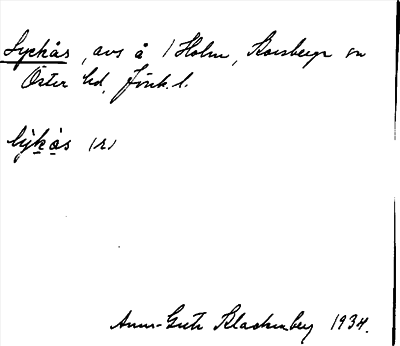 Lyckås, avs å 1 Holm, Korsberga sn
Öster hd, Jönk. l.
lýkås (r)
Anna-Greta Klackenberg 1934.